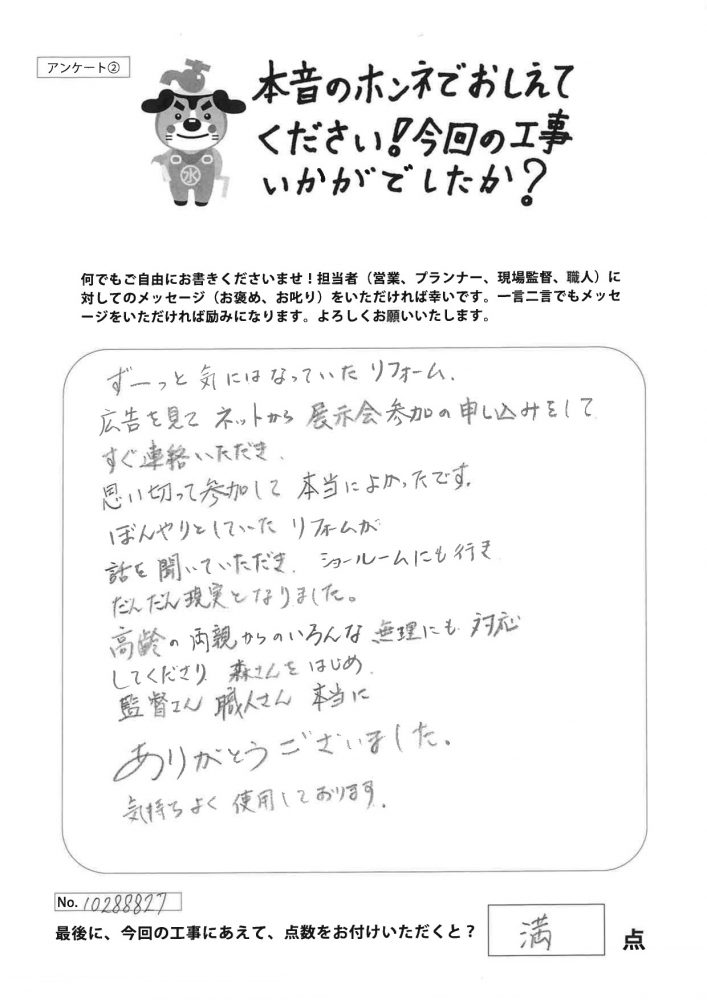 アンケート②
本音のホンネでおしえて
ください!今回の工事
いかがでしたか?
水
何でもご自由にお書きくださいませ!担当者(営業、プランナー、現場監督、職人)に
対してのメッセージ(お褒め、お叱り)をいただければ幸いです。一言二言でもメッセ
ージをいただければ励みになります。よろしくお願いいたします。
ずーっと気にはなっていたリフォーム、
広告を見て ネットから 展示会参加の申し込みをして
すぐ連絡いただき、
思い切って参加して 本当によかったです。
ぼんやりとしていた リフォームが
話を聞いていただき、ショールームにも行き
だんだん現実となりました。
高齢の両親からのいろんな無理にも 対応
してくださり 森さんをはじめ、
監督さん 職人さん 本当に
ありがとうございました。
気持ちよく使用しております。
No. 10288827
最後に、今回の工事にあえて、点数をお付けいただくと? 満 点